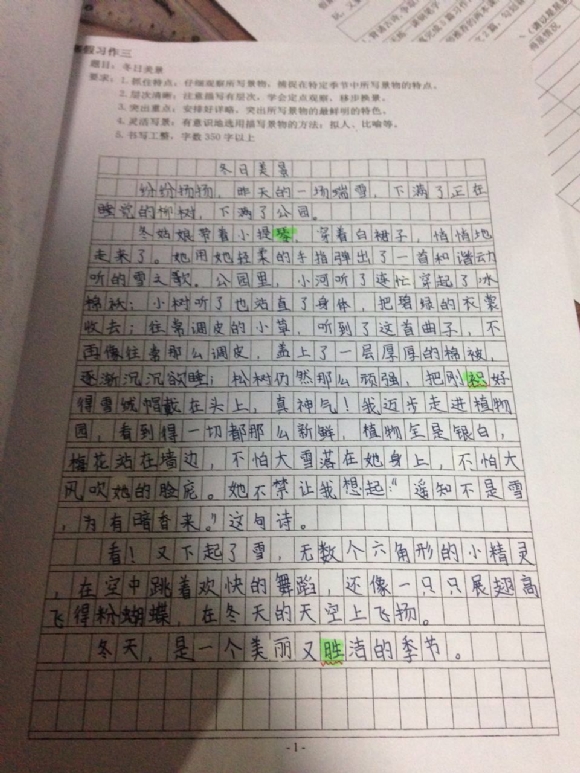 假习作三
题目：冬日美景
要求：1. 抓住特点：仔细观察所写景物，捕捉在特定季节中所写景物的特点。
2. 层次清晰：注意描写有层次，学会定点观察，移步换景。
3. 突出重点：安排好详略，突出所写景物的最鲜明的特色。
4. 灵活写景：有意识地选用描写景物的方法：拟人、比喻等。
5. 书写工整，字数350字以上
冬日美景
纷纷扬扬，昨天的一场瑞雪，下满了正在
睡觉的柳树，下满了公园。
冬姑娘带着小提琴，穿着白裙子，悄悄地
走来了。她用她轻柔的手指弹出了一首和谐动
听的雪之歌。公园里，小河听了连忙穿起了冰
棉袄；小树听了也站直了身体，把碧绿的衣裳
收去；往常调皮的小草，听到了这首曲子，不
再像往常那么调皮，盖上了一层厚厚的棉被，
逐渐沉沉欲睡；松树仍然那么顽强，把刚织好
得雪绒帽戴在头上，真神气！我迈步走进植物
园，看到得一切都那么新鲜，植物全是银白，
梅花站在墙边，不怕大雪落在她身上，不怕大
风吹她的脸庞。她不禁让我想起：“遥知不是雪
，为有暗香来。”这句诗。
看！又下起了雪，无数个六角形的小精灵
，在空中跳着欢快的舞蹈，还像一只只展翅高
飞得粉蝴蝶，在冬天的天空上飞扬。
冬天，是一个美丽又胜洁的季节。
-1-